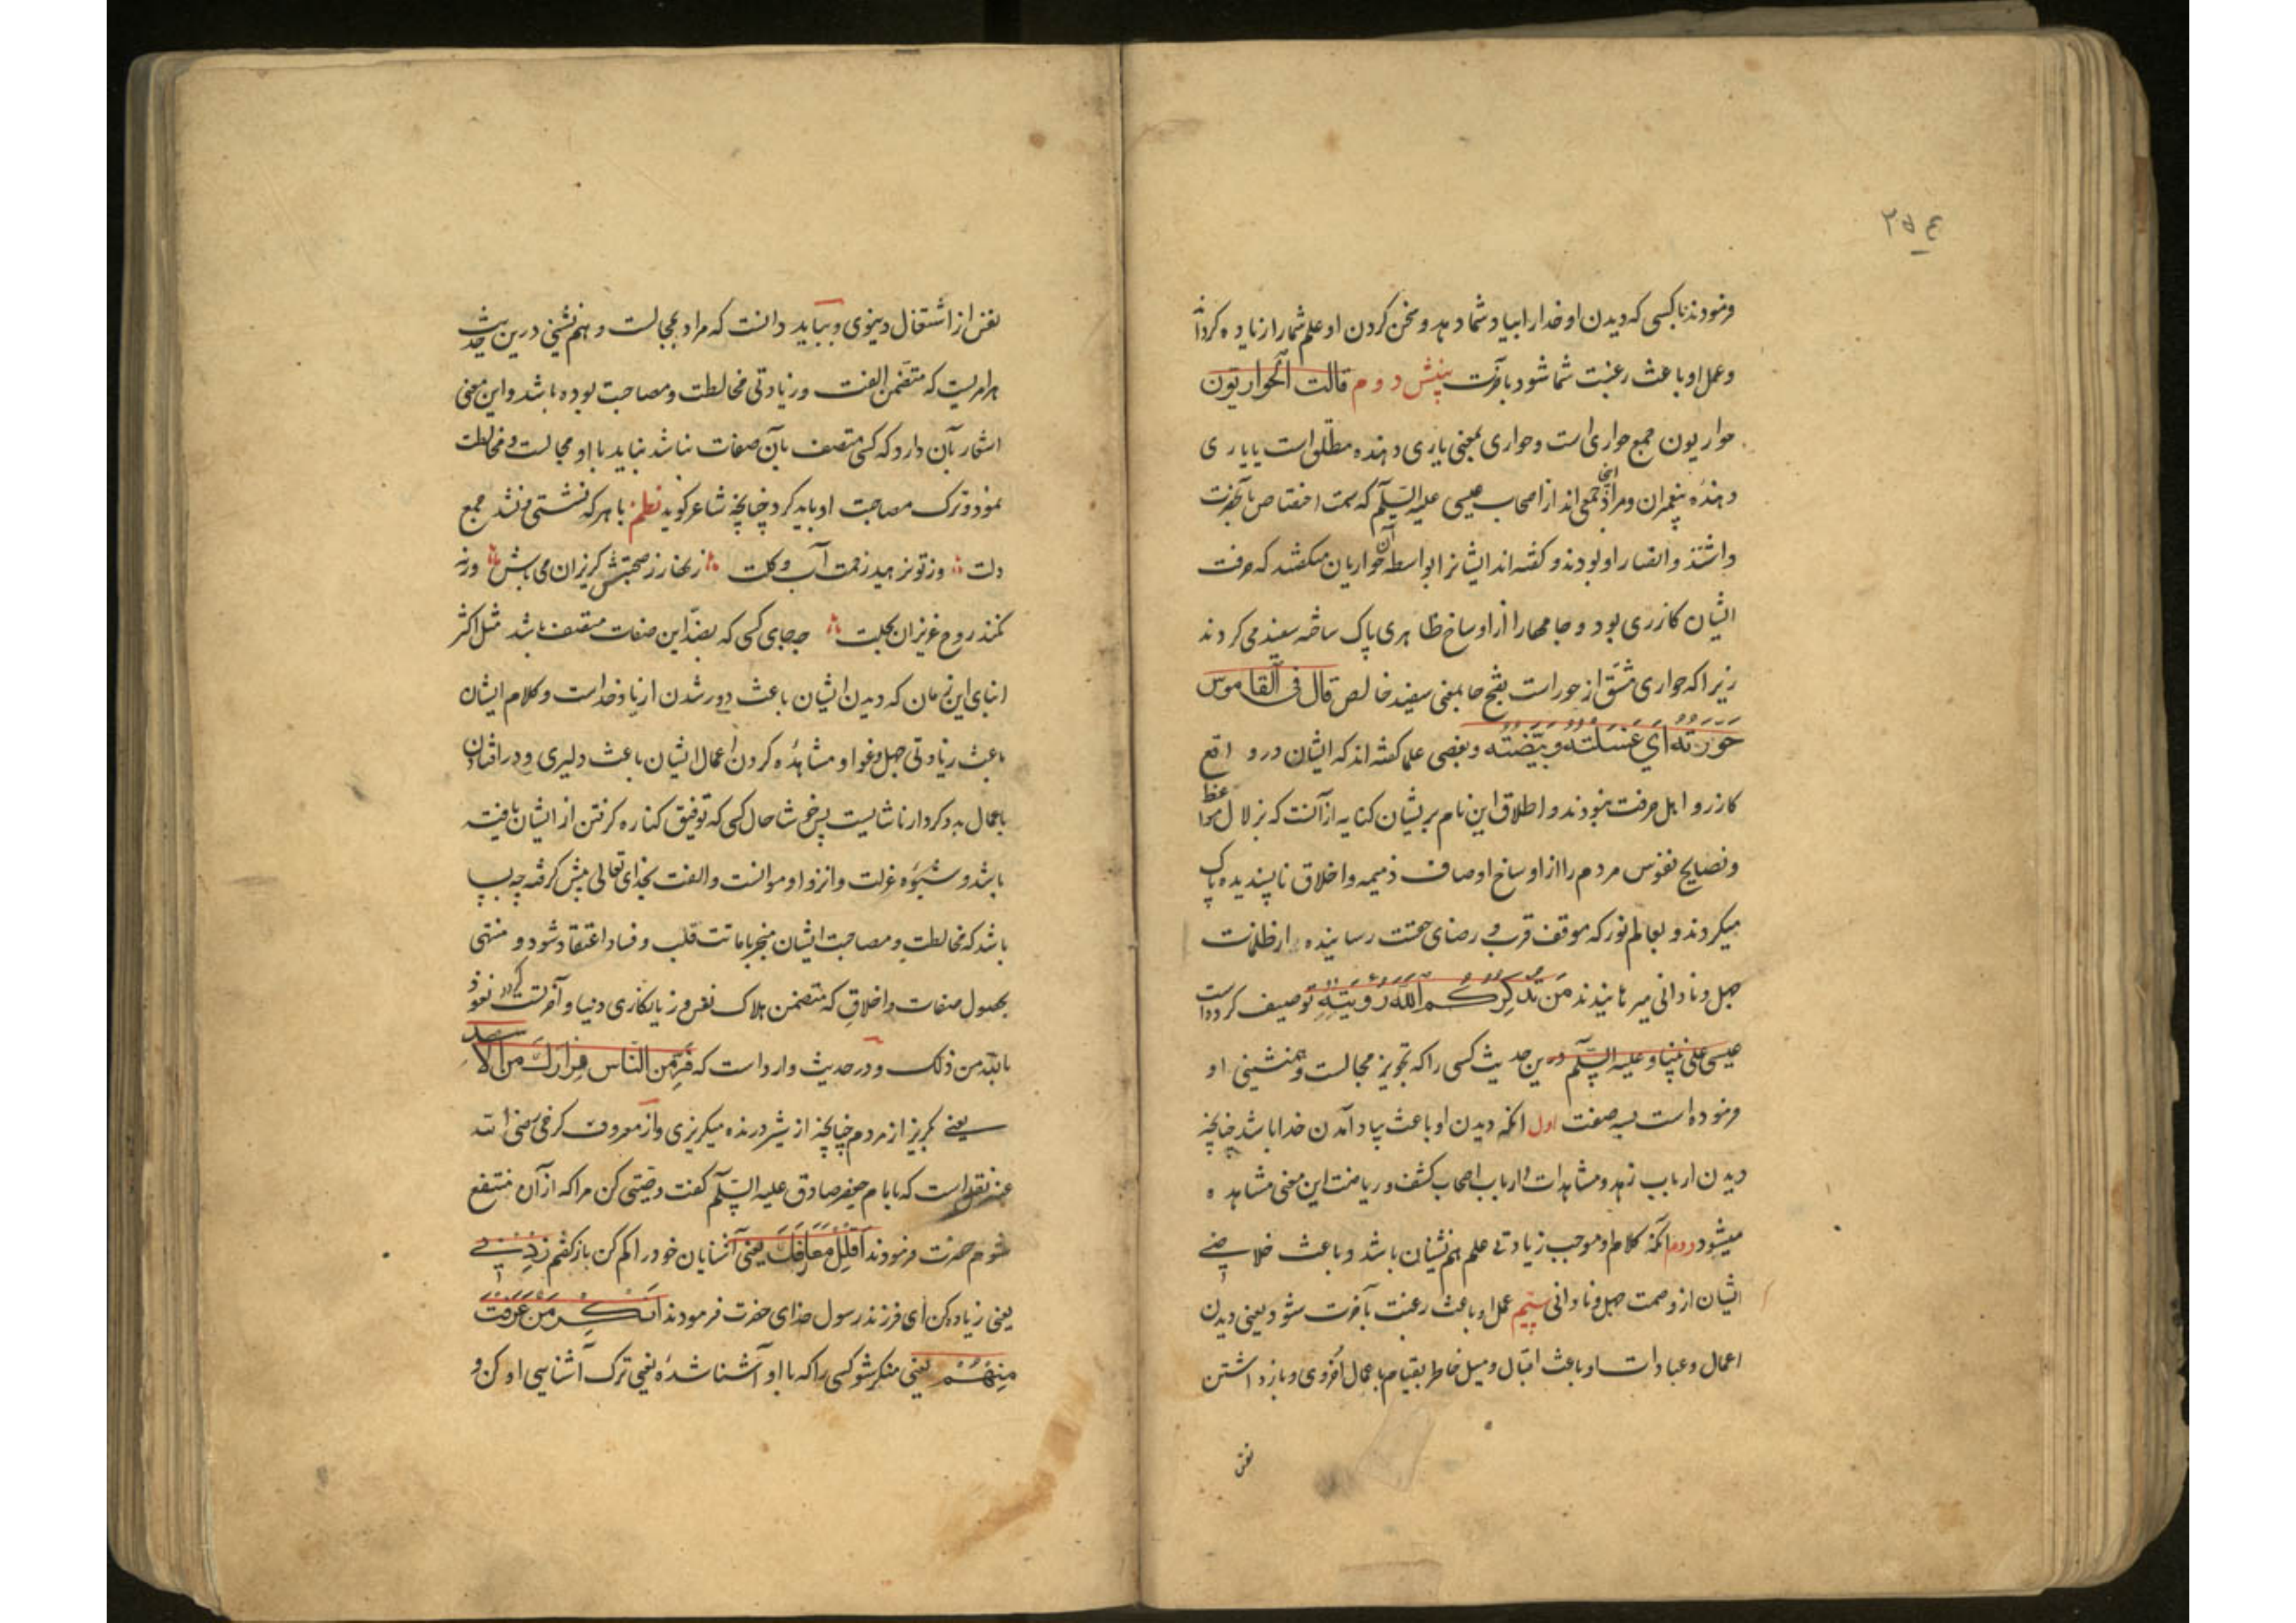 ۲۵۴
فرمودند با کسی که دیدن او خدا را بیاد شما دهد و سخن کردن او علم شما را زیاده کرداند
و عمل او باعث رغبت شما شود بآخرت بینش دوم قالت الحواریون
حواریون جمع حواری است و حواری بمعنی یاری دهنده مطلق است یا یاری
دهنده پیغمبران و مراد اینجا جمعی اند از اصحاب عیسی علیه السلم که سمت اختصاص بآنحضرت
داشتند و انصار او بودند و کفته اند ایشانرا بواسطه آن حواریان میکفتند که حرفت
ایشان کازری بود و جامها را از اوساخ ظاهری پاک ساخته سفید می کردند
زیرا که حواری مشتق از حور است بفتح حا بمعنی سفید خالص قال فی القاموس
حورته ای غسلته و بیضته و بعضی علما کفته اند که ایشان در واقع
کازر و اهل حرفت نبودند و اطلاق این نام بر یشان کنایه از آنست که بزلال مواعظ
و نصایح نفوس مردم را از اوساخ اوصاف ذمیمه و اخلاق ناپسندیده پاک
میکردند و بعالم نور که موقف قرب و رضای حقست رسانیده از ظلمات
جهل و نادانی میرهانیدند من تذکرکم الله رؤیته توصیف کرده است
عیسی علی نبینا و علیه السلم درین حدیث کسی را که تجویز مجالست و همنشینی او
فرموده است بسه صفت اول انکه دیدن او باعث بیاد آمدن خدا باشد چنانچه
دیدن ارباب زهد و مشاهدات و ارباب اصحاب کشف و ریاضت این معنی مشاهده
میشود دوم انکه کلام او موجب زیادتی علم هم نشینان باشد و باعث خلاصی
ایشان از وصمت جهل و نادانی سیم عمل او باعث رغبت بآخرت شود یعنی دیدن
اعمال و عبادات او باعث اقبال و میل خاطر بقیام باعمال اخروی و بازداشتن
نفس
نفس از اشتغال دینوی و بباید دانست که مراد بمجالست و هم نشینی درین حدیث
هر امریست که متضمن الفت و زیادتی مخالطت و مصاحبت بوده باشد و این معنی
اشعار بآن دارد که کسی متصف بآن صفات نباشد نباید با او مجالست و مخالطت
نمود و ترک مصاحبت او باید کرد چنانچه شاعر کوید نظم با هر که نشستی و نشد جمع
دلت وز تو نرمید زحمت آب و کلت زنهار ز صحبتش کریزان می باش ورنه
نکند روح عزیزان بحلت چه جای کسی که بضد این صفات متصف باشد مثل اکثر
ابنای این زمان که دیدن ایشان باعث دور شدن از یاد خداست و کلام ایشان
باعث زیادتی جهل و غوا و مشاهده کردن اعمال ایشان باعث دلیری و در افتادن
باعمال بد و کردار ناشایست پس خوشا حال کسی که توفیق کناره کرفتن از ایشان یافته
باشد و شیوه عزلت و انزوا و موانست و الفت بخدای تعالی پیش کرفته چه بسا
باشد که مخالطت و مصاحبت ایشان منجر باماتت قلب و فساد اعتقاد شود و منتهی
بحصول صفات و اخلاق که متضمن هلاک نفس و زیانکاری دنیا و آخرتست کردد نعوذ
بالله من ذلک و در حدیث وارد است که فر من الناس فرارک من الاسد
یعنی بکریز از مردم چنانچه از شیر درنده میکریزی و از معروف کرخی رضی الله
عنه نقل است که بامام جعفر صادق علیه السلم کفت وصیتی کن مرا که از آن منتفع
شوم حضرت فرمودند اقلل معارفک یعنی آشنایان خود را کم کن باز کفتم زدنی
یعنی زیاده کن ای فرزند رسول خدای حضرت فرمودند انکر من عرفت
منهم یعنی منکر شو کسی را که با او آشنا شده یعنی ترک آشنایی او کن و